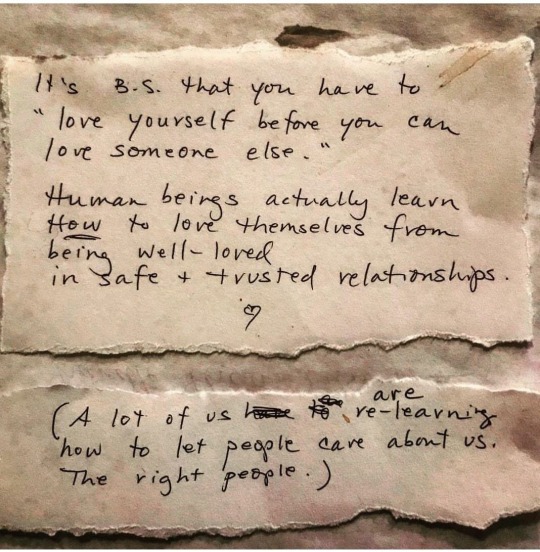 It's B.S. that you have to
"love yourself before you can
love someone else."
Human beings actually learn
How to love themselves from
being well-loved
in safe + trusted relationships.
(A lot of us are re-learning
how to let people care about us.
The right people.)